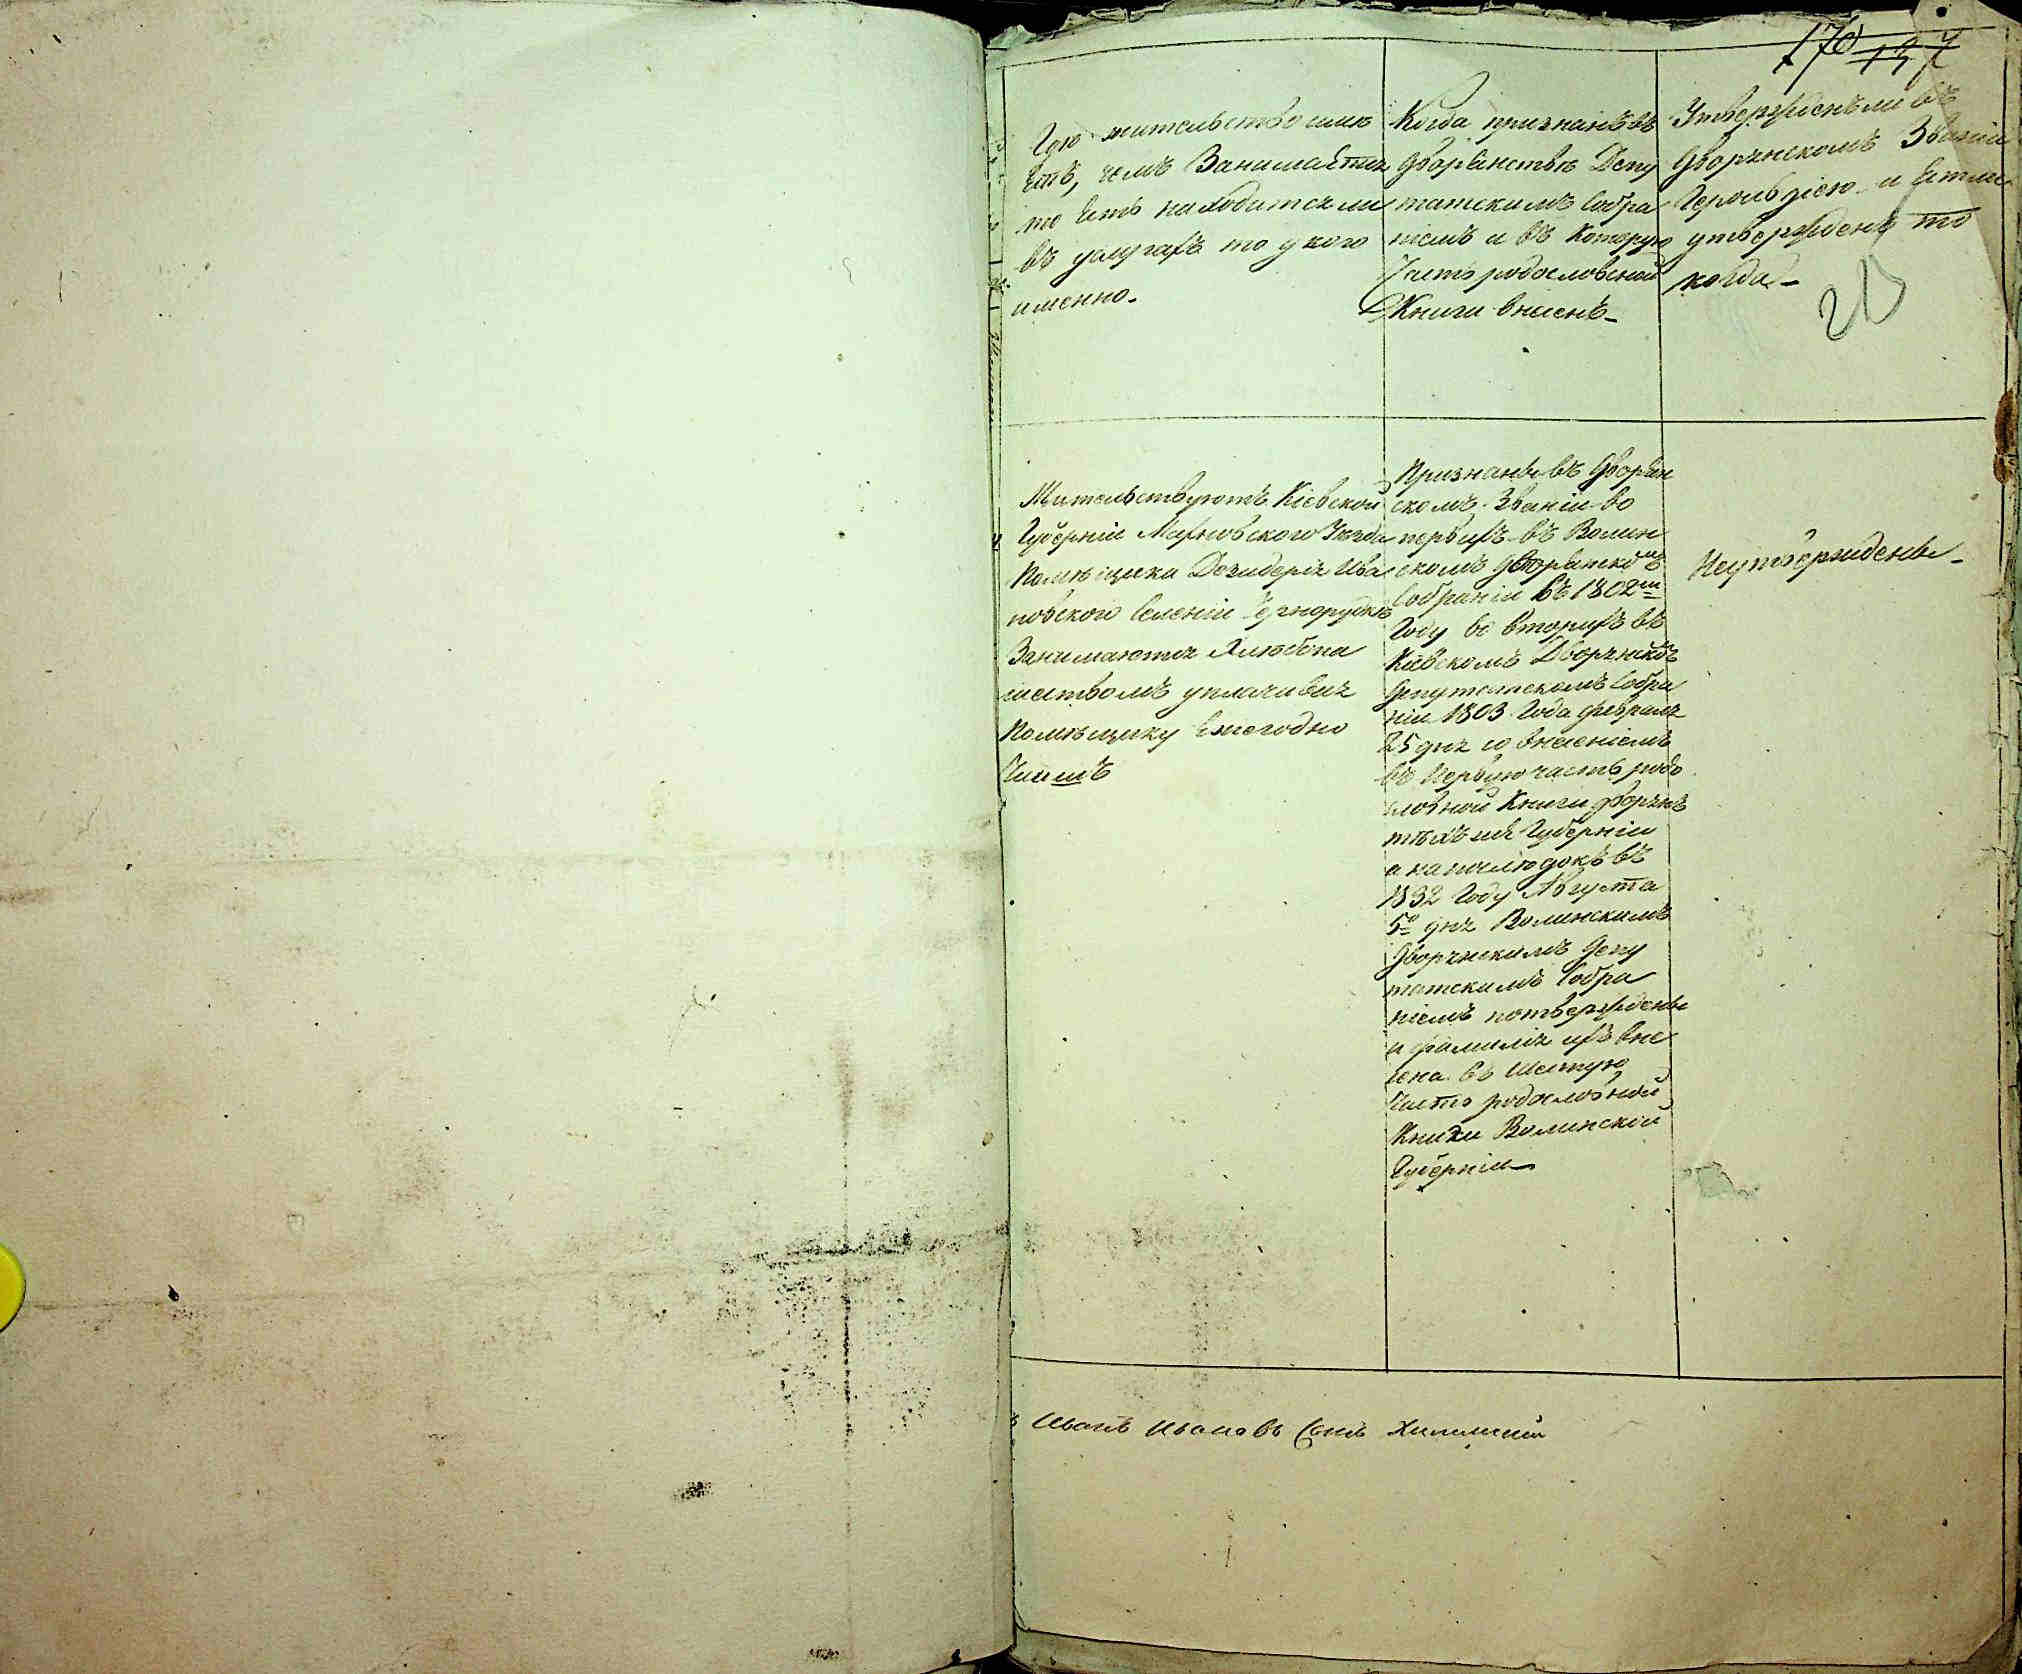 170 137
Где жительство име
етъ, чемъ Занимается
то есть находится ли
въ услугахъ то у кого
именно.
Когда признанъ въ
дворянстве Депу
татскимъ Собра
ніемъ и въ которую
Часть родословной
Книги внесенъ
Утвержденъ ли въ
дворянскомъ Званіи
Герольдіею и Если
утвержденъ то
когда
Жительствуютъ Кіевской
Губерніи Махновского Уезда
Помещика Дезидерія Ива
новского Селеніи Чернорудке
Занимаются Хлебопа
шествомъ уплачивая
Помещику Ежегодно
Чиншъ
Признаны въ Дворян
скомъ Званіи во
первыхъ въ Волин
скомъ дворянскомъ
Собраніи въ 1802м
Году во вторыхъ въ
Кіевскомъ Дворянском
Депутатскомъ Собра
ніи 1803 Года февраля
25 дня со внесеніемъ
въ Первую часть родо
словной Книги дворянъ
Губерніи
а напоследокъ въ
1832 Году Августа
5о дня Волинскимъ
Дворянскимъ Депу
татскимъ Собра
ніемъ потверждены
и фамилія ихъ вне
сена въ Шестую
Часть родословной
Книги Волинской
Губерніи
Неутверждены
Иванъ Ивановъ Сынъ